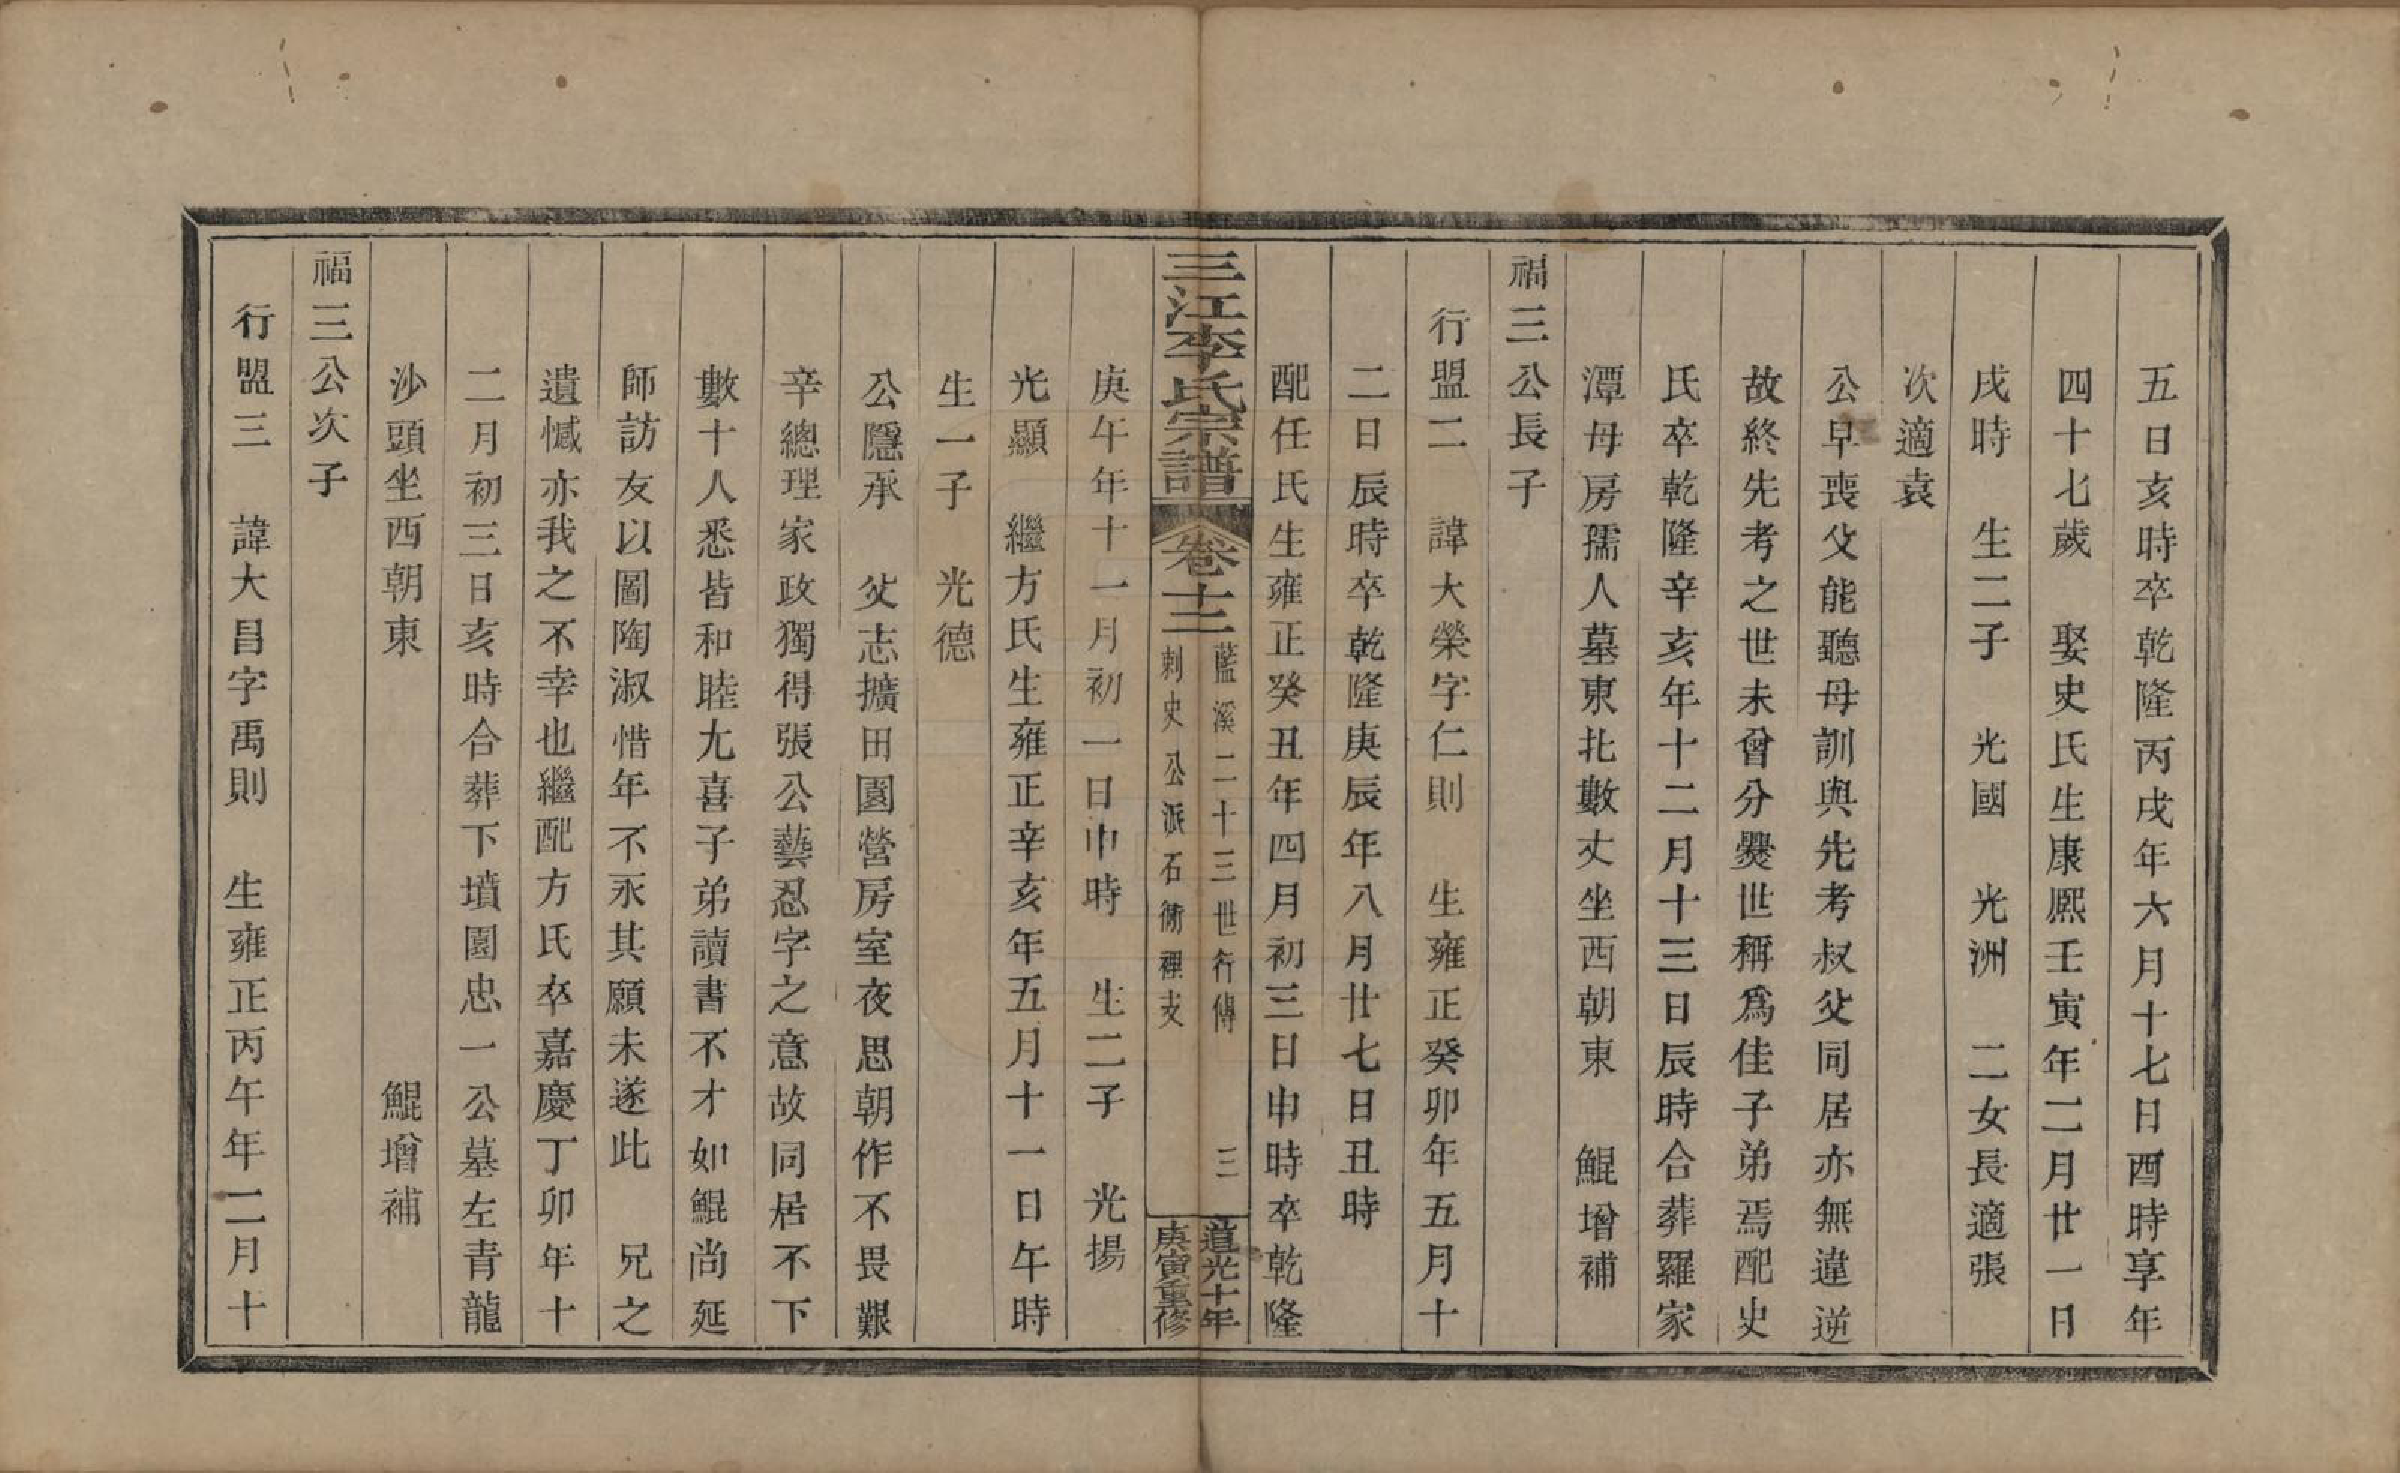 五日亥時卒乾隆丙戌年六月十七日酉時享年
四十七歲　娶史氏生康熙壬寅年二月廿一日
戌時　生二子　光國　光洲　二女長適張
次適袁
公早喪父能聽母訓與先考叔父同居亦無違逆
故終先考之世未曾分爨世稱為佳子弟焉配史
氏卒乾隆辛亥年十二月十三日辰時合葬羅家
潭母房孺人墓東北數丈坐西朝東　鯤增補
福三公長子
行盟二　諱大榮字仁則　生雍正癸卯年五月十
二日辰時卒乾隆庚辰年八月廿七日丑時
配任氏生雍正癸丑年四月初三日申時卒乾隆
三江李氏宗譜　卷十二　藍溪二十三世行傳　三
刺史公派石衕裡支
道光十年
庚寅重修
庚午年十一月初一日申時　生二子　光揚
光顯　繼方氏生雍正辛亥年五月十一日午時
生一子　光德
公隱承　父志擴田園營房室夜思朝作不畏艱
辛總理家政獨得張公藝忍字之意故同居不下
數十人悉皆和睦尤喜子弟讀書不才如鯤尚延
師訪友以圖陶淑惜年不永其願未遂此　兄之
遺憾亦我之不幸也繼配方氏卒嘉慶丁卯年十
二月初三日亥時合葬下墳園忠一公墓左青龍
沙頭坐西朝東　鯤增補
福三公次子
行盟三　諱大昌字禹則　生雍正丙午年二月十